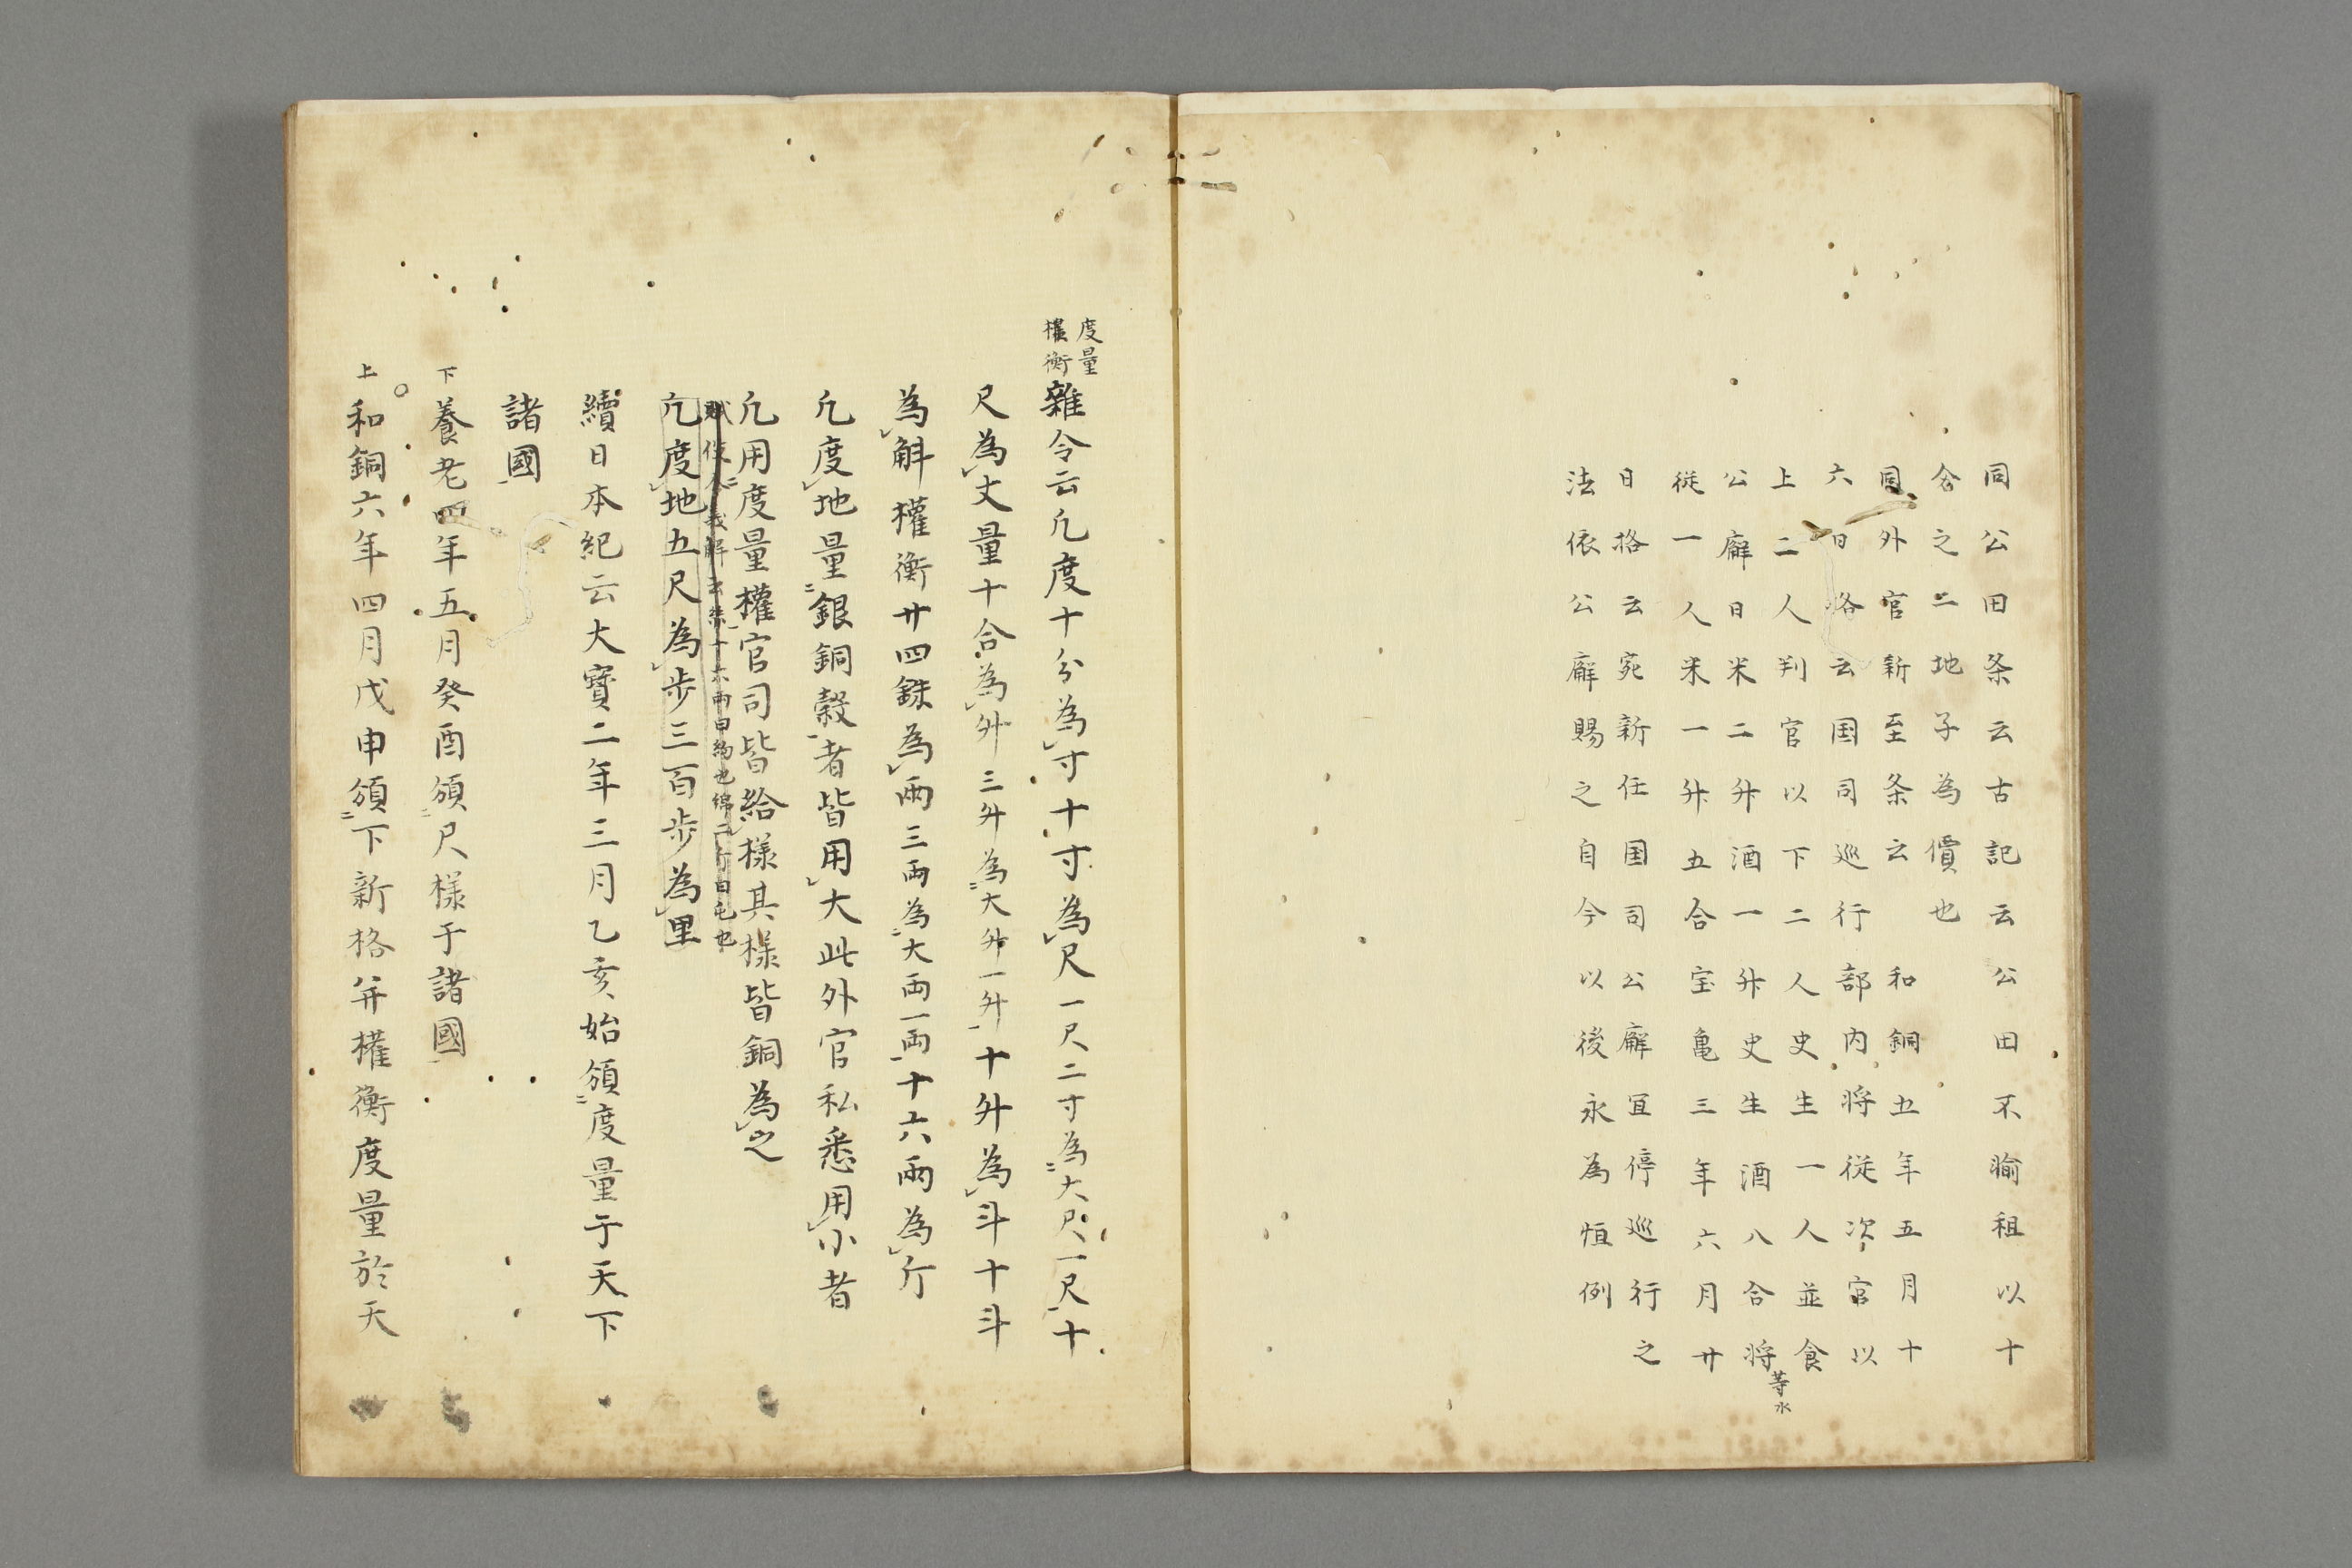 同公田条云古記云公田不輸租以十
分之二地子為價也
同外官新至条云 和銅五年五月十
六日格云国司巡行部内将従次官以
上二人判官以下二人史生一人並食
公廨日米二升酒一升史生酒八合将
等水
従一人米一升五合宝亀三年六月廿
日格云宛新任国司公廨宜停巡行之
法依公廨賜之自今以後永為恒例
度量
權衡
雜令云凡度十分為寸十寸為尺一尺二寸為大尺一尺十
尺為丈量十合為升三升為大升一升十升為斗十斗
為斛權衡廿四銖為兩三兩為大両一両十六兩為斤
凡度地量銀銅穀者皆用大此外官私悉用小者
凡用度量權官司皆給樣其樣皆銅為之
賦役令義解云絲十六兩曰絇也綿二斤曰屯也
凡度地五尺為步三百步為里
續日本紀云大寶二年三月乙亥始頒度量于天下
諸國
下養老四年五月癸酉頒尺樣于諸國
上和銅六年四月戊申頒下新格并權衡度量於天